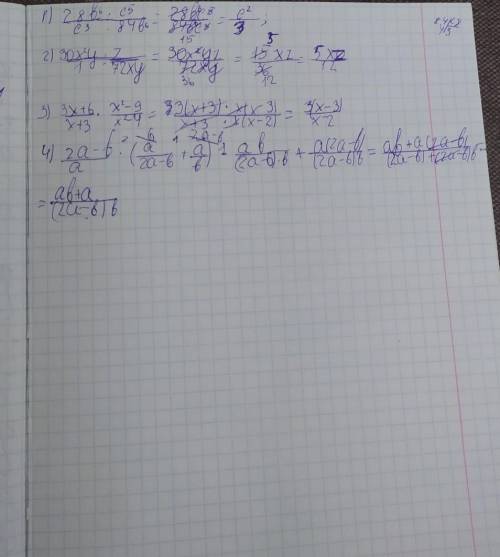 1) 28b⁶/c³ · c⁵/84b⁶ = 28b⁶c⁵/84b⁶c³ = c²/3 ;
2) 30x²y/1 · z/72xy = 30x²yz/72xy = 15xz/36 = 5xz/12
3) 3x+6/x+3 · x²-9/x²-4 = 3(x+3) · x(x-3)/x+3 · x(x-2) = 3(x-3)/x-2
4) 2a-b/a · (a/2a-b + a/b) = ab/(2a-b)b + a(2a-b)/(2a-b)b = ab+a(2a-b)/(2a-b)+(2a-b)b =
= ab+a/(2a-b)b